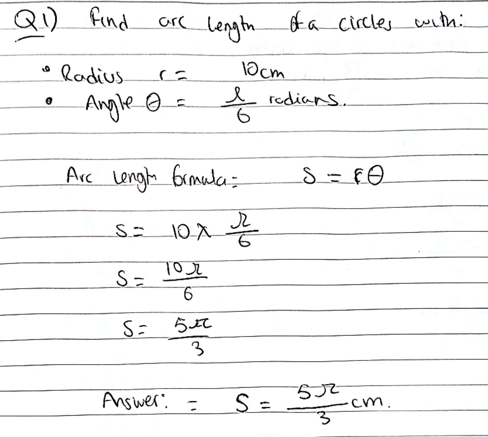 Q1) Find arc length of a circles with:
• Radius r = 10cm
• Angle θ = π/6 radians.
Arc length formula = S = rθ
S = 10 × π/6
S = 10π/6
S = 5π/3
Answer: = S = 5π/3 cm.